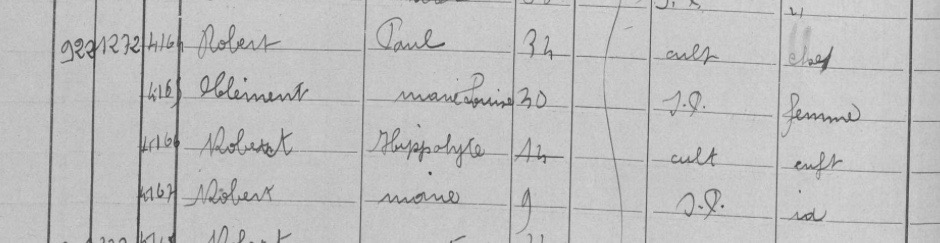 922 1272 4164 Robert Paul 32 cult chef
4165 Clément marie Louise 30 S.P. femme
4166 Robert Hippolyte 12 cult enft
4167 Robert marie 9 S.P. id